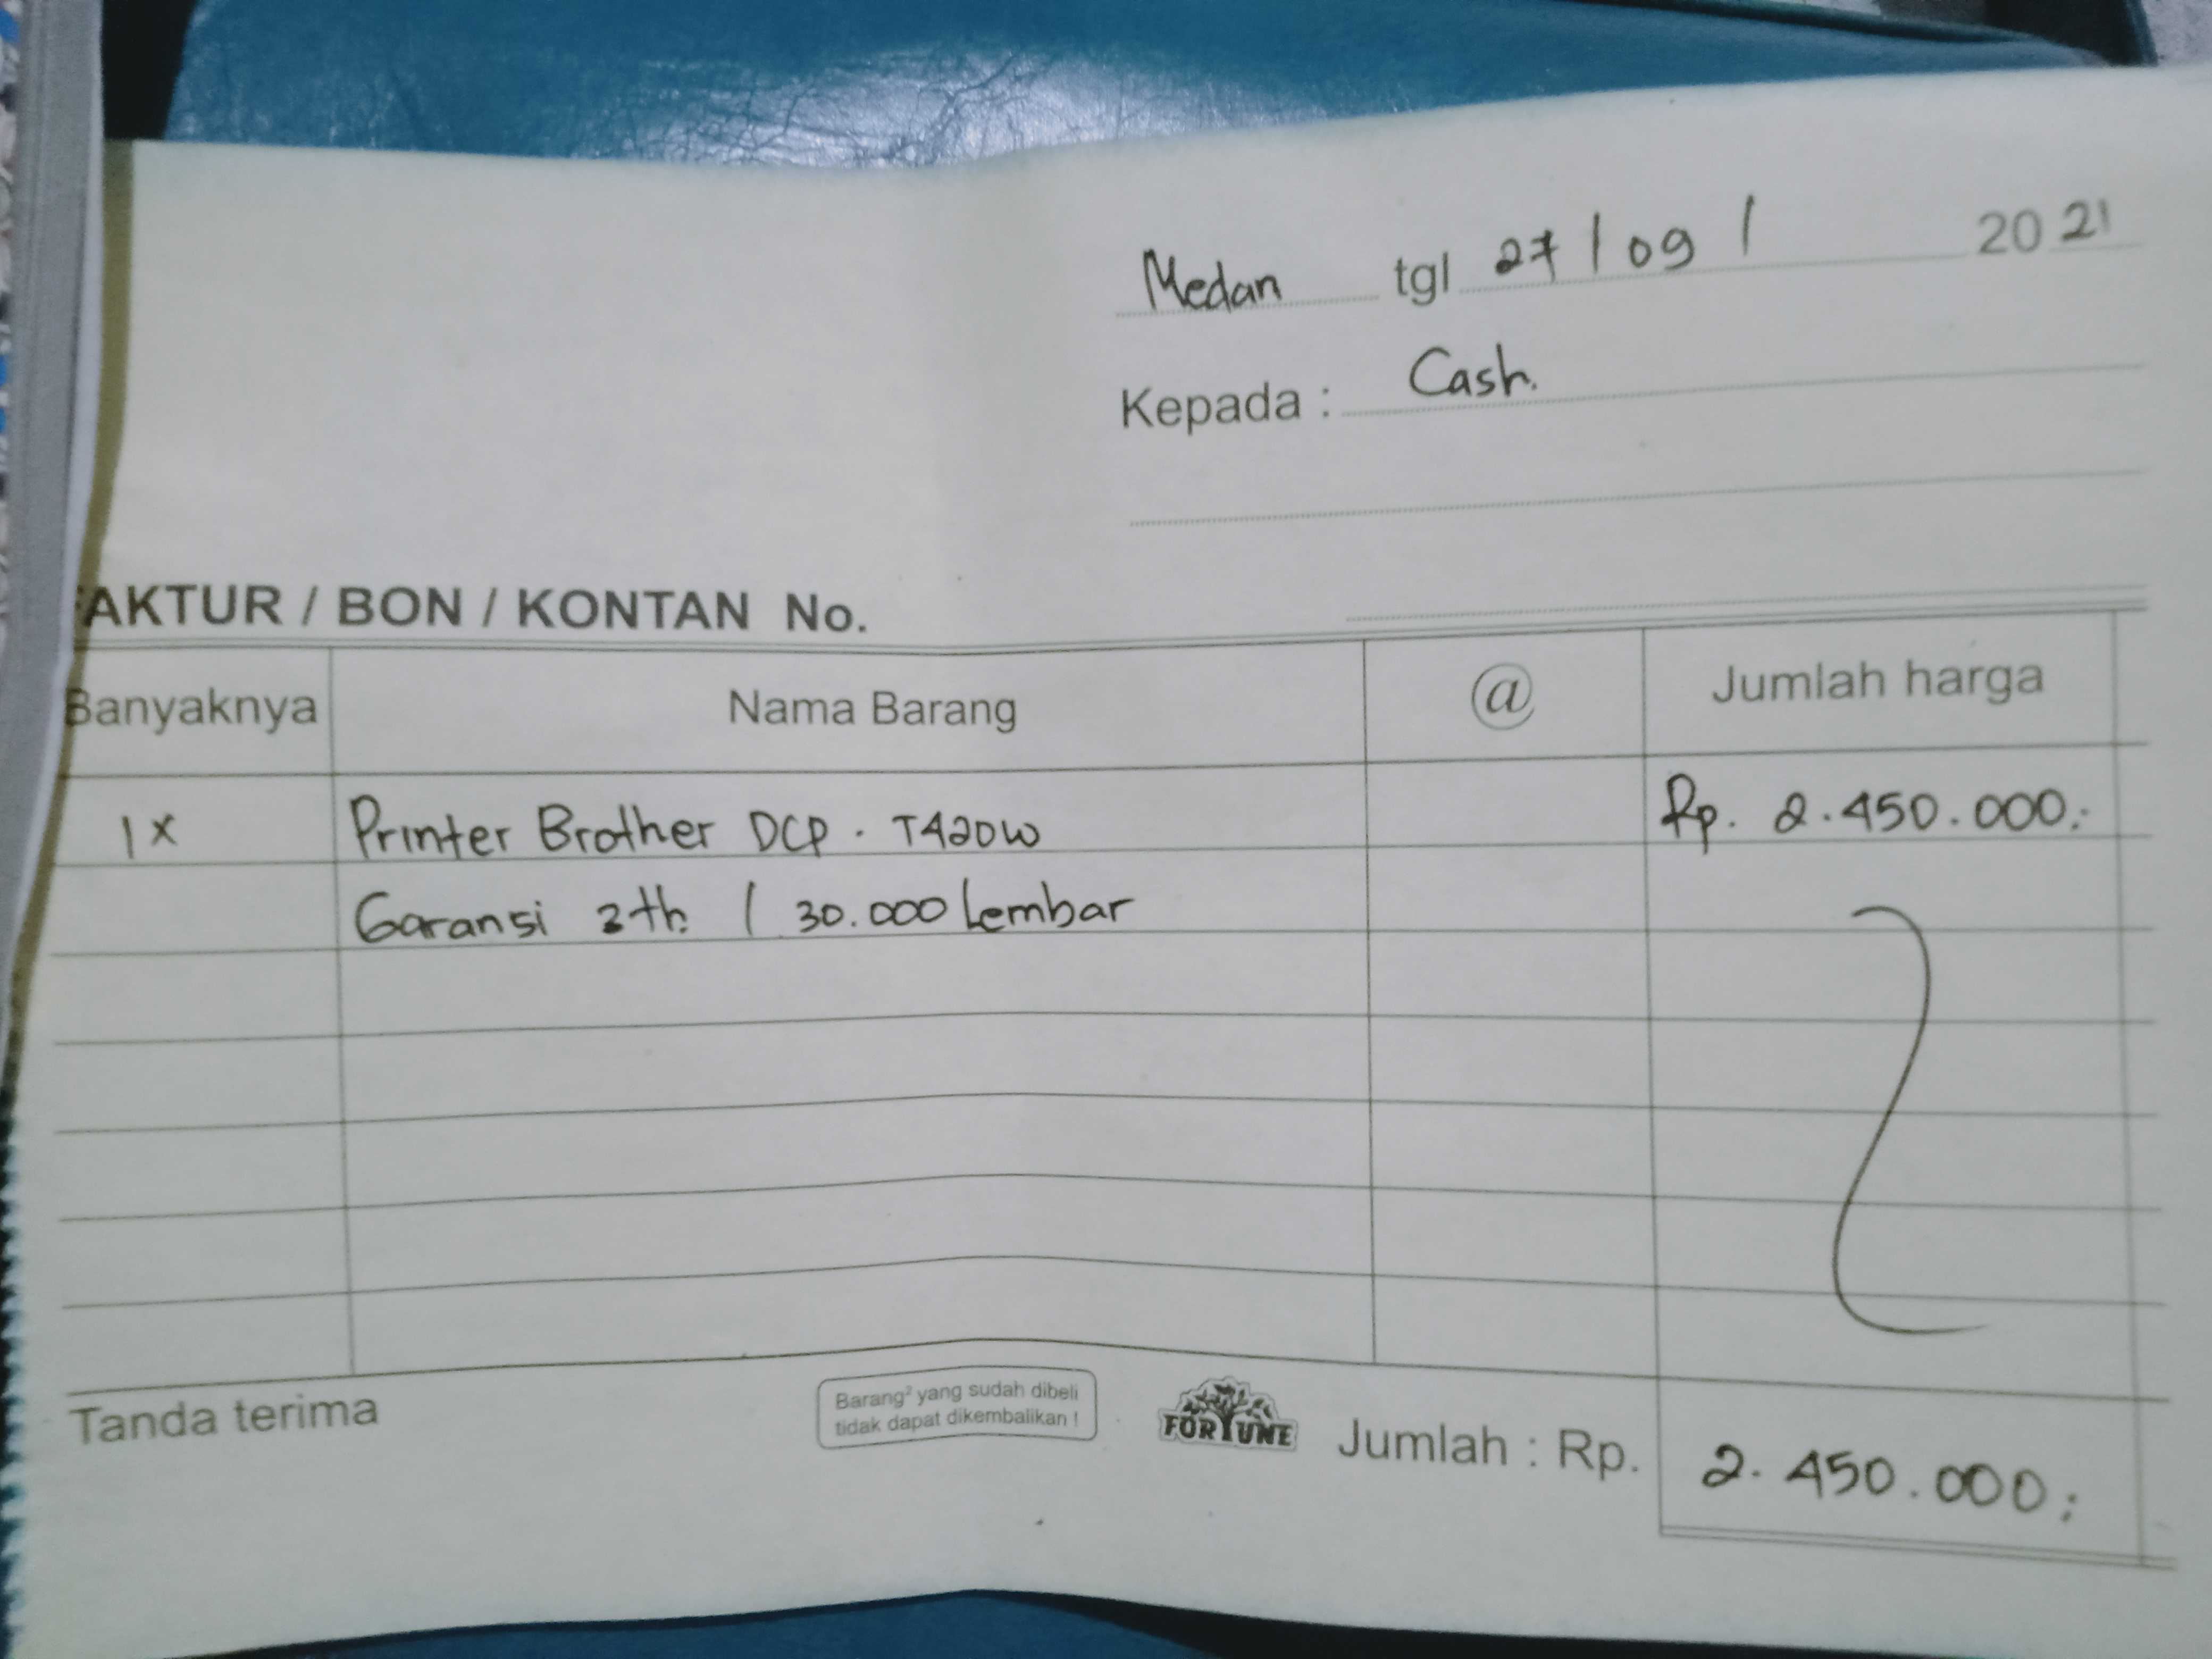 Medan tgl 27 / 09 / 2021
Kepada : Cash.
FAKTUR / BON / KONTAN No.
Banyaknya Nama Barang @ Jumlah harga
1x Printer Brother DCP. T420W Rp. 2.450.000:
Garansi th. / 30.000 Lembar
Tanda terima
Barang² yang sudah dibeli
tidak dapat dikembalikan !
FORTUNE
Jumlah : Rp. 2.450.000;